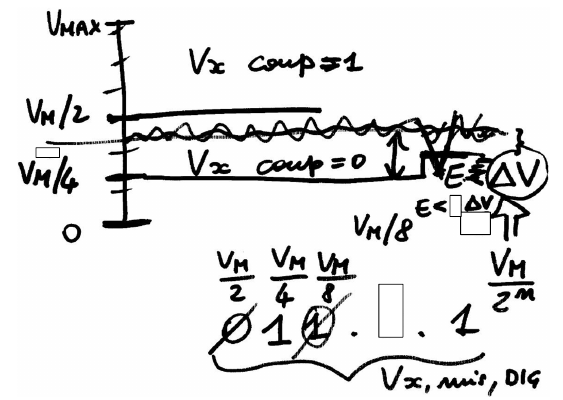 VMAX
Vx comp = 1
VM/2
Vx comp = 0
VM/4
E
ΔV
E < ΔV
0
VM/8
VM/2 VM/4 VM/8 VM/2^n
0 1 1 . . 1
Vx, mis, DIG